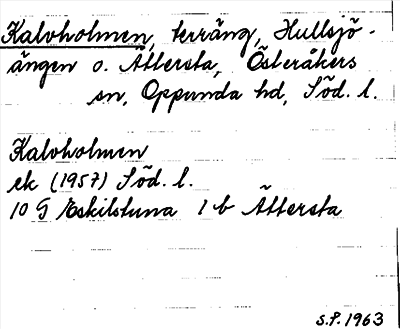 Kalvholmen, terräng, Hullsjö-
ängen o. Ättersta, Österåkers
sn, Oppunda hd, Söd. l.
Kalvholmen
ek (1957) Söd. l.
10 G Eskilstuna 1 b Ättersta
S.P. 1963